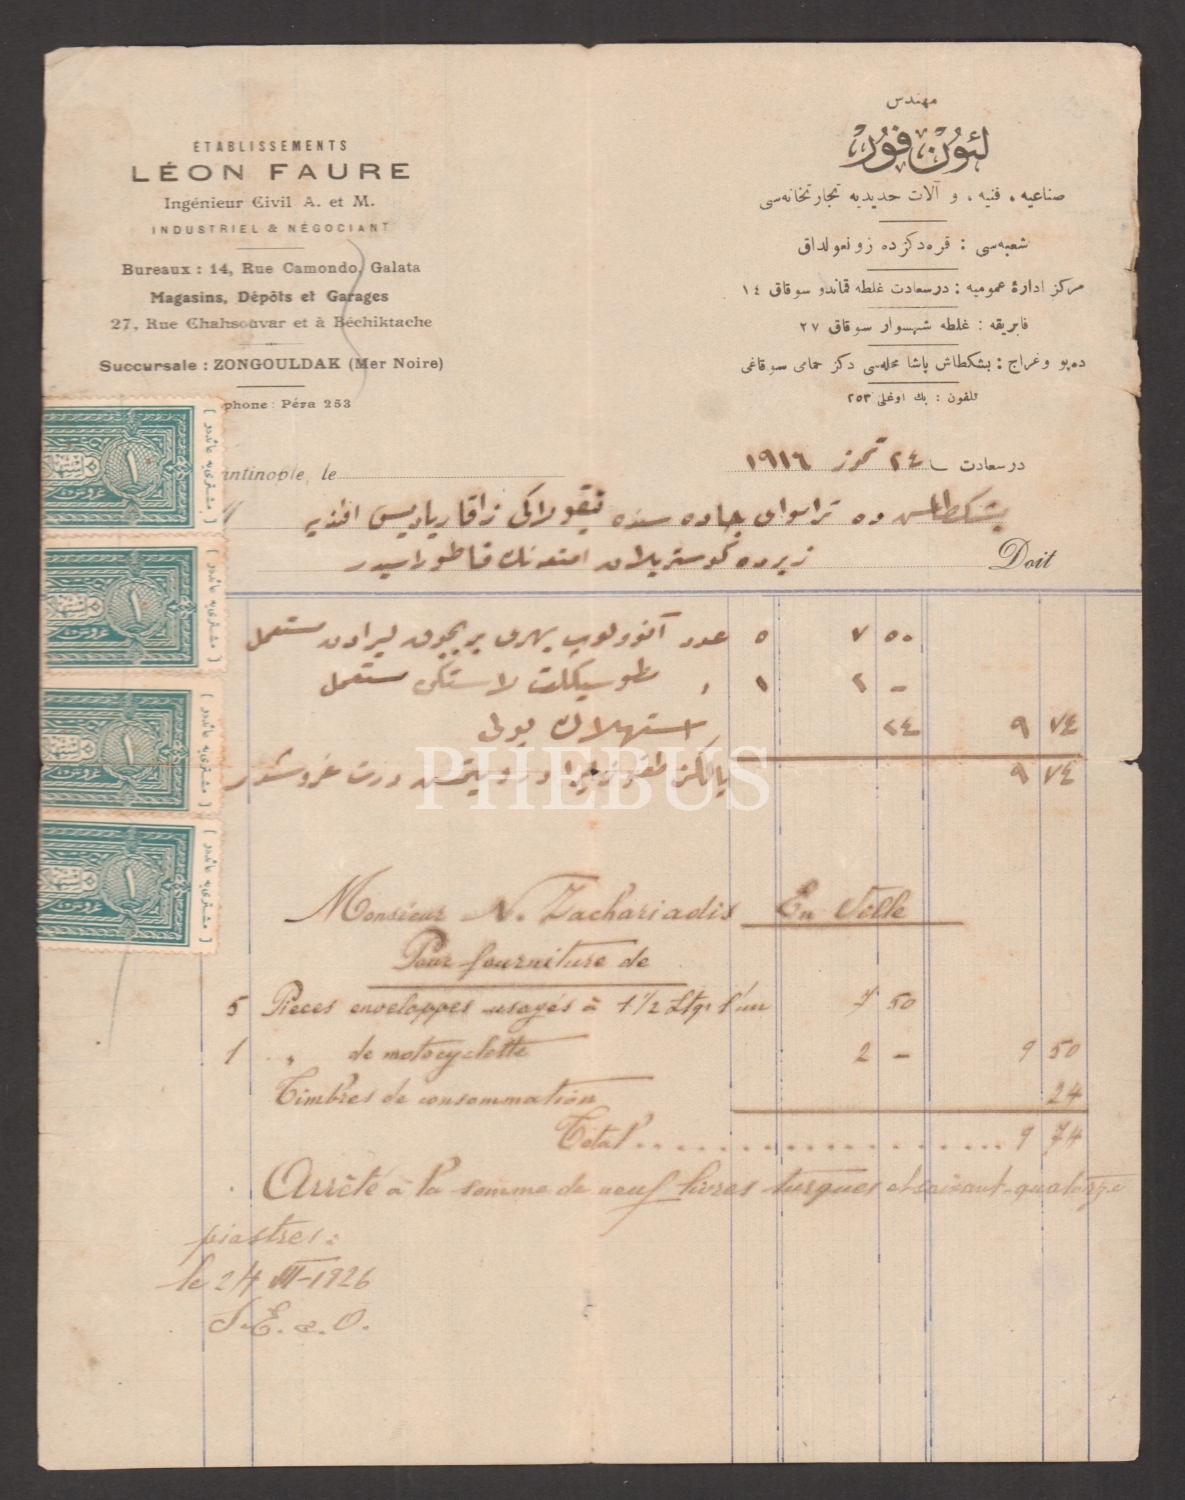 ÉTABLISSEMENTS
LÉON FAURE
Ingénieur Civil A. et M.
INDUSTRIEL & NÉGOCIANT
Bureaux : 14, Rue Camondo, Galata
Magasins, Dépôts et Garages
27, Rue Chahsouvar et à Béchiktache
Succursale : ZONGOULDAK (Mer Noire)
phone : Péra 253
مهندس
لئون فور
صناعيه ، فنيه ، و آلات حديديه تجارتخانه‌سى
شعبه‌سى : قره‌دكزده زونغولداق
مركز ادارۀ عموميه : درسعادت غلطه قماندو سوقاق ١٤
فابريقه : غلطه شهسوار سوقاق ٢٧
ده‌پو وغراج : بشكطاش پاشا محله‌سى دكز حمامى سوقاغى
تلفون : بك اوغلى ٢٥٣
antinople, le
درسعادت ٢٤ تموز ١٩١٦
بشكطاشده ترامواى جاده سنده نيقولاكى زاقارياديس افنديه
زيرده كوستريلان امتعه نك فاطوراسيدر
Doit
٥ عدد ٧ ٥٠
١ موطوسيكلت لاستكى مستعمل ٢ -
استهلاك پولى ٢٤ ٩ ٧٤
يالكز طقوز ليرا يتمش درت غروشدر ٩ ٧٤
PHEBUS
Monsieur N. Zachariadis En Ville
Pour fourniture de
5 Pièces enveloppes usagés à 1 1/2 Ltqs l'un 7 50
1 " de motocyclette 2 - 9 50
Timbres de consommation 24
Total . . . . . . . . . . . . . . . . . . . 9 74
Arrêté à la somme de neuf livres turques et soixant-quatorze
piastres.
le 24 VII-1926
S.E. & O.